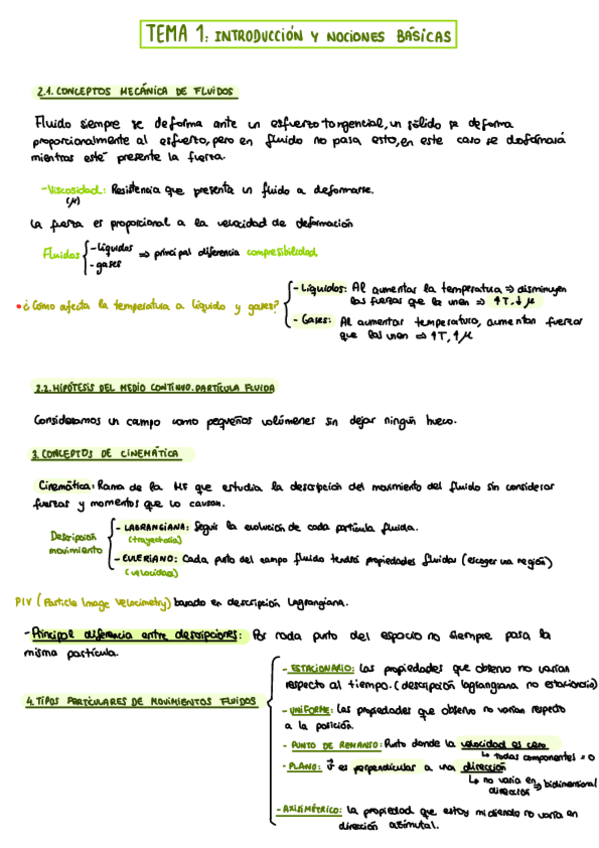 TEMA 1: INTRODUCCIÓN Y NOCIONES BÁSICAS
2.1. CONCEPTOS MECÁNICA DE FLUIDOS
Fluido siempre se deforma ante un esfuerzo tangencial, un sólido se deforma
proporcionalmente al esfuerzo, pero en fluido no pasa esto, en este caso se desformará
mientras esté presente la fuerza.
- Viscosidad: Resistencia que presenta un fluido a deformarse.
(μ)
La fuerza es proporcional a la velocidad de deformación
Fluidos { - Líquidos ⇒ principal diferencia compresibilidad
- gases
• ¿Cómo afecta la temperatura a líquido y gases?
- Líquidos: Al aumentar la temperatura ⇒ disminuyen
las fuerzas que la unen ⇒ ↑T, ↓μ
- Gases: Al aumentar temperatura, aumentan fuerzas
que las unen ⇒ ↑T, ↑μ
2.2. HIPÓTESIS DEL MEDIO CONTINUO. PARTÍCULA FLUIDA
Consideramos un campo como pequeños volúmenes sin dejar ningún hueco.
3. CONCEPTOS DE CINEMÁTICA
Cinemática: Rama de la MF que estudia la descripción del movimiento del fluido sin considerar
fuerzas y momentos que lo causan.
Descripción movimiento
- LAGRANGIANA: Seguir la evolución de cada partícula fluida.
(trayectoria)
- EULERIANO: Cada punto del campo fluido tendrá propiedades fluidas (escoger una región)
(velocidad)
PIV (Particle Image Velocimetry) basado en descripción Lagrangiana.
- Principal diferencia entre descripciones: Por cada punto del espacio no siempre pasa la
misma partícula.
4. TIPOS PARTICULARES DE MOVIMIENTOS FLUIDOS
- ESTACIONARIO: Las propiedades que observo no varían
respecto al tiempo. (descripción lagrangiana no estacionario)
- UNIFORME: Las propiedades que observo no varían respecto
a la posición.
- PUNTO DE REMANSO: Punto donde la velocidad es cero
↳ todas componentes = 0
- PLANO: v⃗ es perpendicular a una dirección
↳ no varía en dirección ⇒ bidimensional
- AXISIMÉTRICO: La propiedad que estoy midiendo no varía en
dirección azimutal.